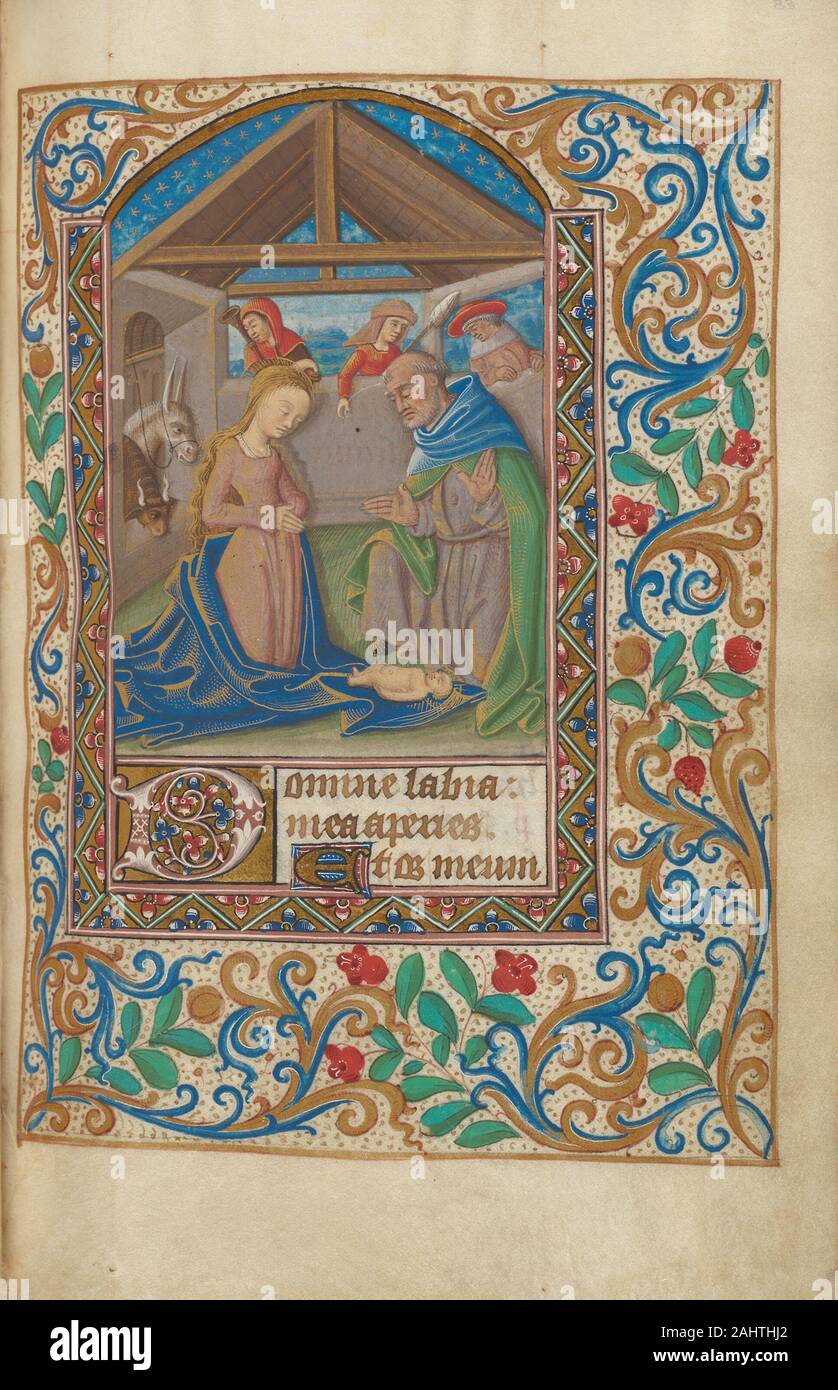 Domine labia
mea aperies.
Et os meum
alamy
Image ID: 2AHTHJ2
www.alamy.com